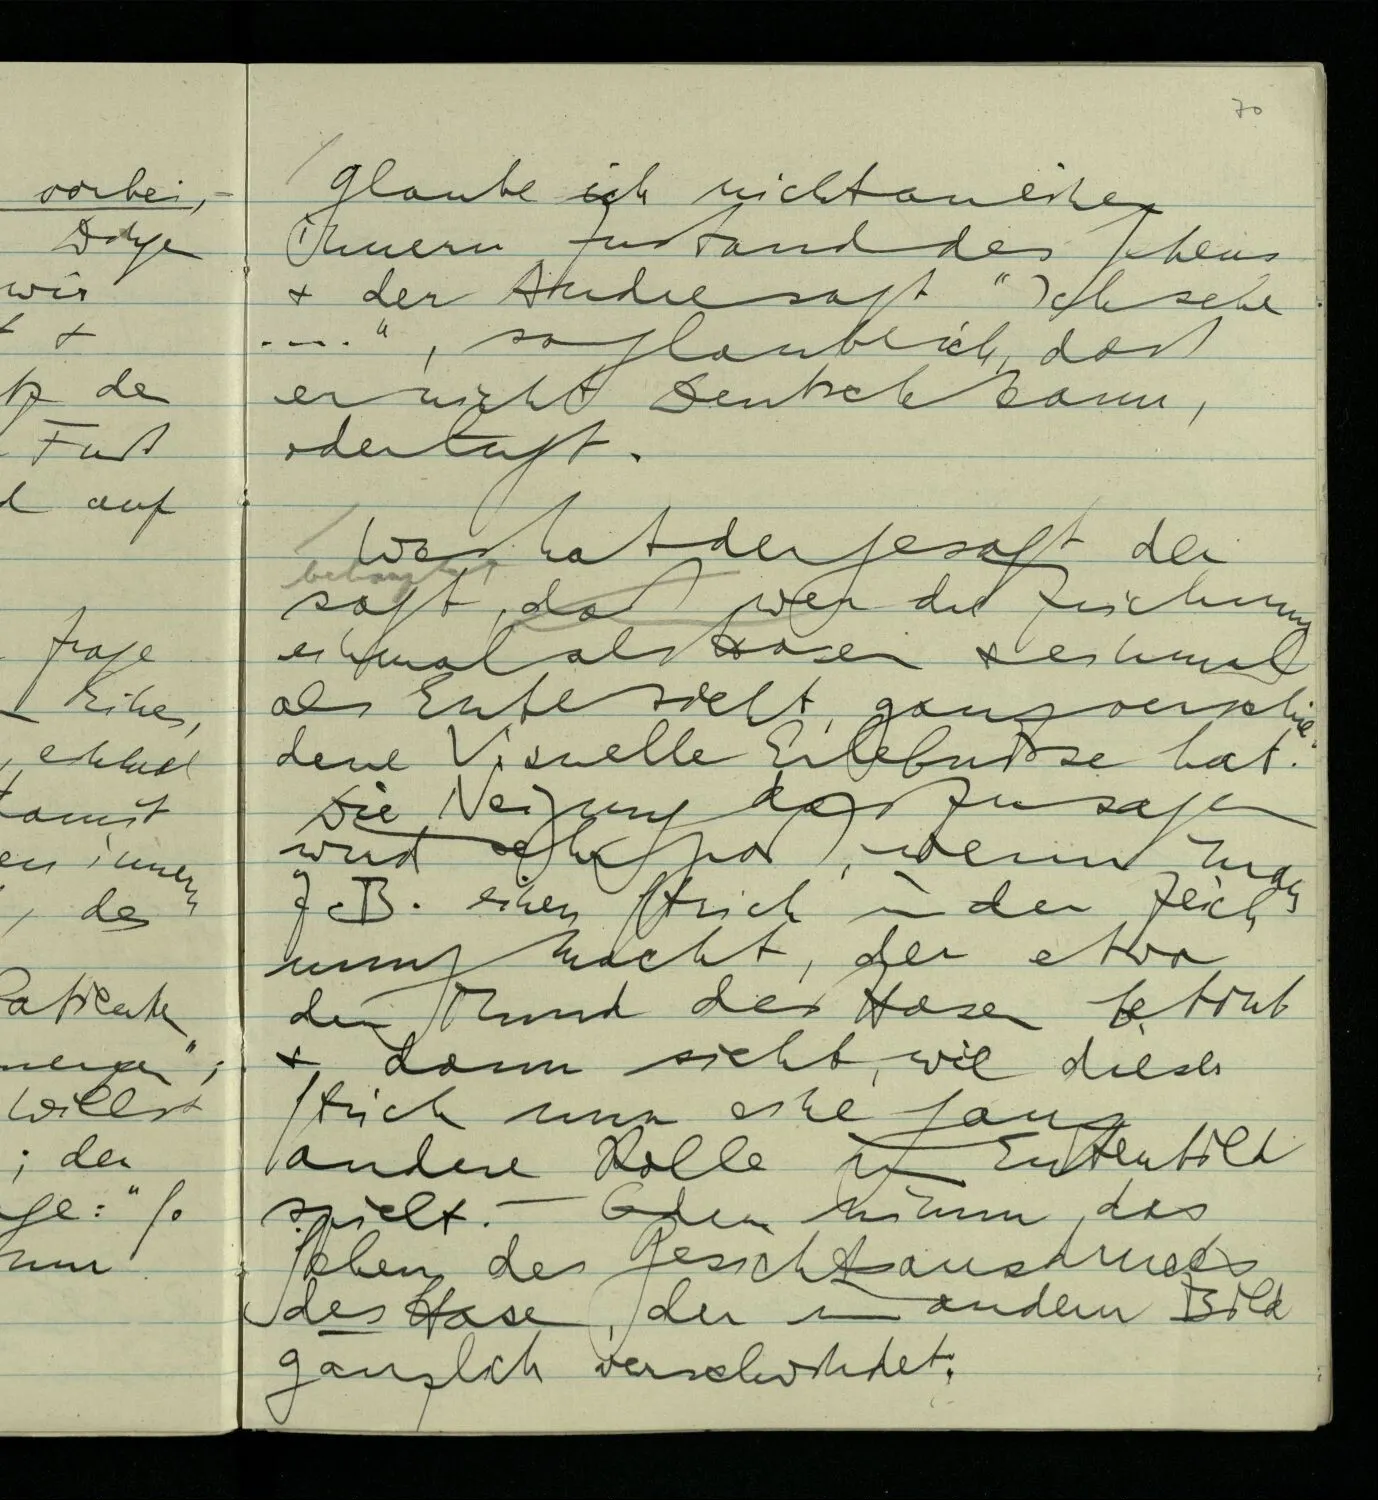 vorbei, –
Dinge
wir
t +
de
Fuß
d auf
frage
einmal
kommst
en innern
, des
Patienten
";
willst
; der
ge: " So
nun
70
Glaube ich nicht an einen
innern Zustand des Sehens
+ der Andre sagt "Ich sehe
....", so glaube ich, daß
er nicht Deutsch kann,
oder lügt.
Was hat der gesagt der
behauptet
sagt, daß wer die Zeichnung
einmal als Hasen + einmal
als Ente sieht, ganz verschie-
dene Visuelle Erlebnisse hat.
Die Neigung das zu sagen
wird sehr groß, wenn man
z.B. einen Strich in der Zeich
nung macht, der etwa
den Mund des Hasen betont
+ dann sieht, wie dieser
Strich nun eine ganz
andere Rolle im Entenbild
spielt. – Oder nimm das
Sehen des Gesichtsausdrucks
des Hasen, der im andern Bild
gänzlich verschwindet.